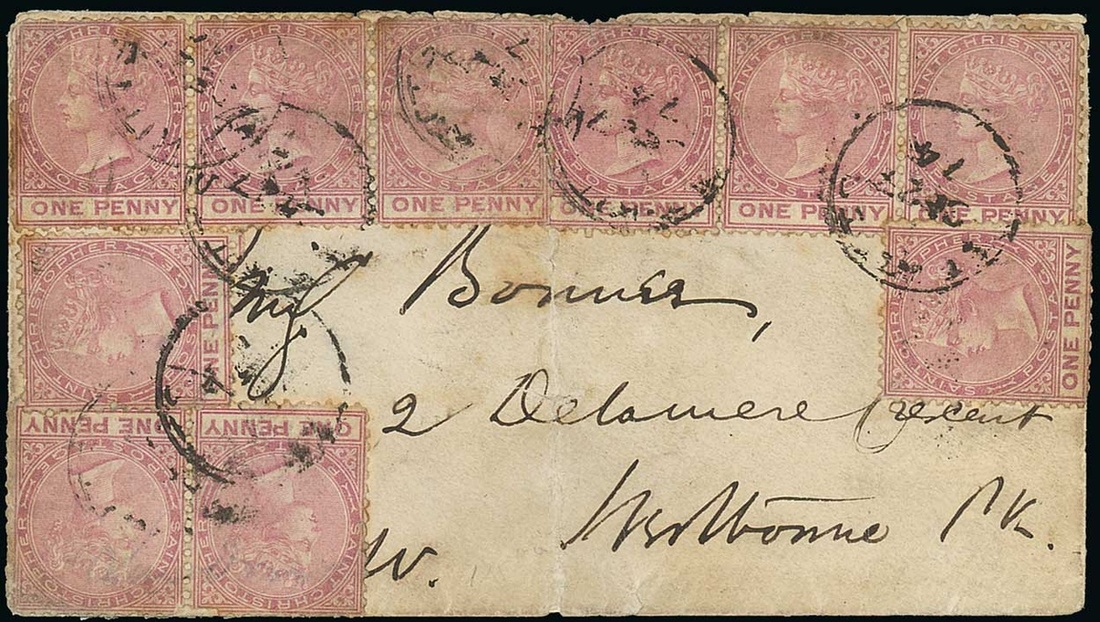 SAINT CHRISTOPHER POSTAGE ONE PENNY
SAINT CHRISTOPHER POSTAGE ONE PENNY
SAINT CHRISTOPHER POSTAGE ONE PENNY
SAINT CHRISTOPHER POSTAGE ONE PENNY
SAINT CHRISTOPHER POSTAGE ONE PENNY
SAINT CHRISTOPHER POSTAGE ONE PENNY
CHRISTOPHER POSTAGE ONE PENNY
Bonner,
SAINT CHRISTOPHER POSTAGE ONE PENNY
2 Delamere Crescent
SAINT CHRISTOPHER POSTAGE ONE PENNY
SAINT CHRISTOPHER POSTAGE ONE PENNY
Westbourne Pk.
W.